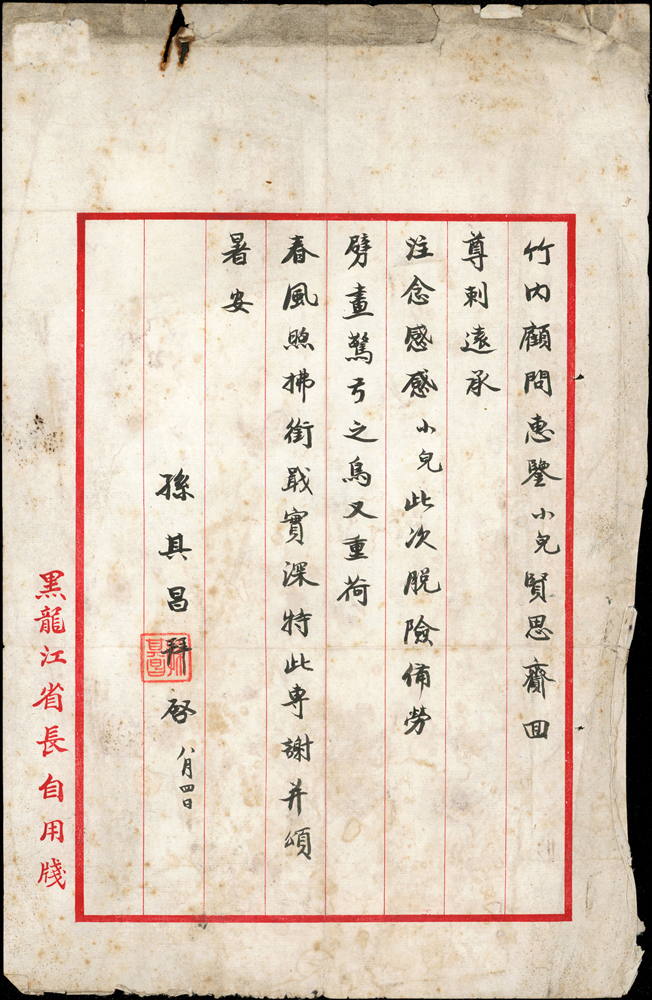 竹內顧問惠鑒小兒賢思齎回
尊剌遠承
注念感感小兒此次脫險備勞
劈畫驚弓之鳥又重荷
春風煦拂銜戢實深特此專謝并頌
暑安
孫其昌拜啓八月四日
黑龍江省長自用牋